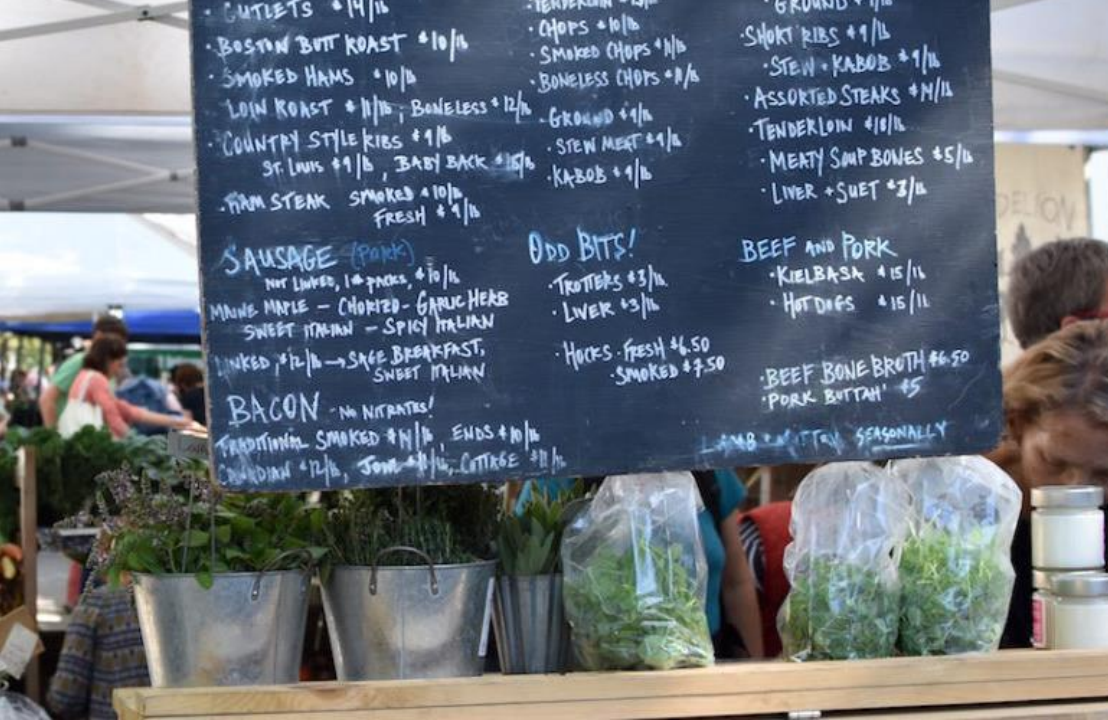 CUTLETS $14/lb
· BOSTON BUTT ROAST $10/lb
· SMOKED HAMS $10/lb
LOIN ROAST $11/lb ; BONELESS $12/lb
· COUNTRY STYLE RIBS $9/lb
ST. LOUIS $9/lb , BABY BACK
· HAM STEAK SMOKED $10/lb
FRESH $9/lb
SAUSAGE (PORK)
NOT LINKED, 1lb PACKS, $10/lb
MAINE MAPLE - CHORIZO - GARLIC HERB
SWEET ITALIAN - SPICY ITALIAN
LINKED, $12/lb → SAGE BREAKFAST,
SWEET ITALIAN
BACON - NO NITRATES!
TRADITIONAL SMOKED $14/lb, ENDS $10/lb
CANADIAN $12/lb, JOWL, COTTAGE $11/lb
TENDERLOIN
· CHOPS $10/lb
· SMOKED CHOPS $11/lb
· BONELESS CHOPS $11/lb
· GROUND $9/lb
· STEW MEAT $9/lb
· KABOB $9/lb
ODD BITS!
· TROTTERS $3/lb
· LIVER $3/lb
· HOCKS · FRESH $6.50
· SMOKED $7.50
· GROUND $9/lb
· SHORT RIBS $9/lb
· STEW · KABOB $9/lb
· ASSORTED STEAKS $14/lb
· TENDERLOIN
· MEATY SOUP BONES $5/lb
· LIVER + SUET $3/lb
BEEF AND PORK
· KIELBASA $15/lb
· HOT DOGS $15/lb
· BEEF BONE BROTH $6.50
· PORK BUTTAH' $5
LAMB SEASONALLY